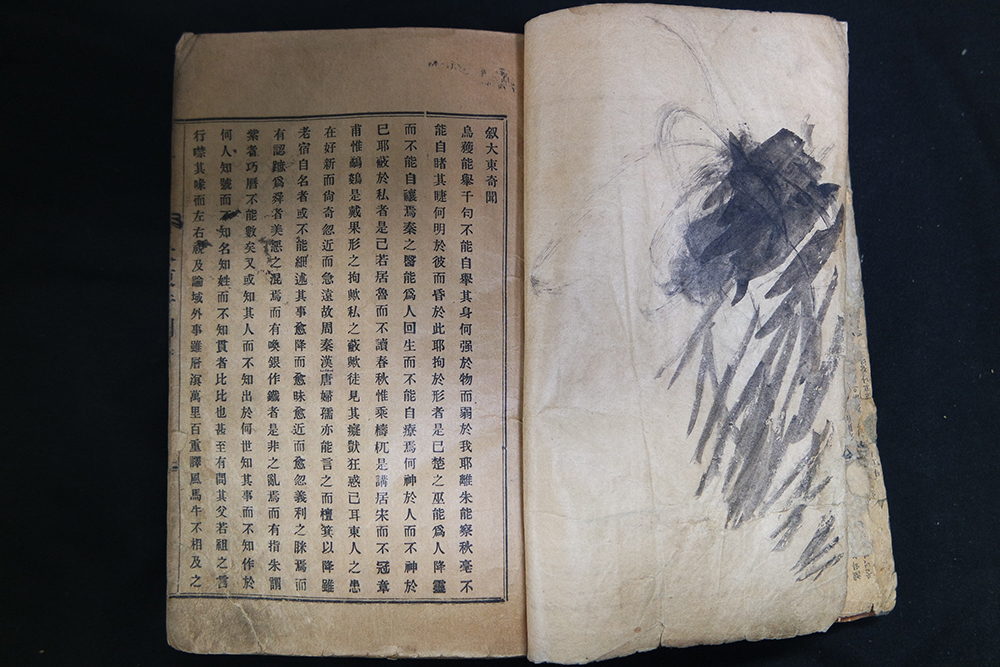 叙大東奇聞
烏獲能舉千匀不能自舉其身何强於物而弱於我耶離朱能察秋毫不
能自睹其睫何明於彼而昏於此耶拘於形者是已楚之巫能爲人降靈
而不能自禳焉秦之醫能爲人回生而不能自療焉何神於人而不神於
已耶蔽於私者是已若居魯而不讀春秋惟乘檮杌是講居宋而不冠章
甫惟鷸鷄是戴果形之拘歟私之蔽歟徒見其癡獃狂惑已耳東人之患
在好新而尙奇忽近而急遠故周秦漢唐婦孺亦能言之而檀箕以降雖
老宿自名者或不能細述其事愈降而愈昧愈近而愈忽義利之眯焉而
有認蹠爲舜者美惡之混焉而有喚銀作鐵者是非之亂焉而有指朱謂
紫者巧曆不能數矣又或知其人而不知出於何世知其事而不知作於
何人知號而不知名知姓而不知貫者比比也甚至有問其父若祖之言
行噤其喙而左右視及論域外事雖厝溟萬里百重譯風馬牛不相及之